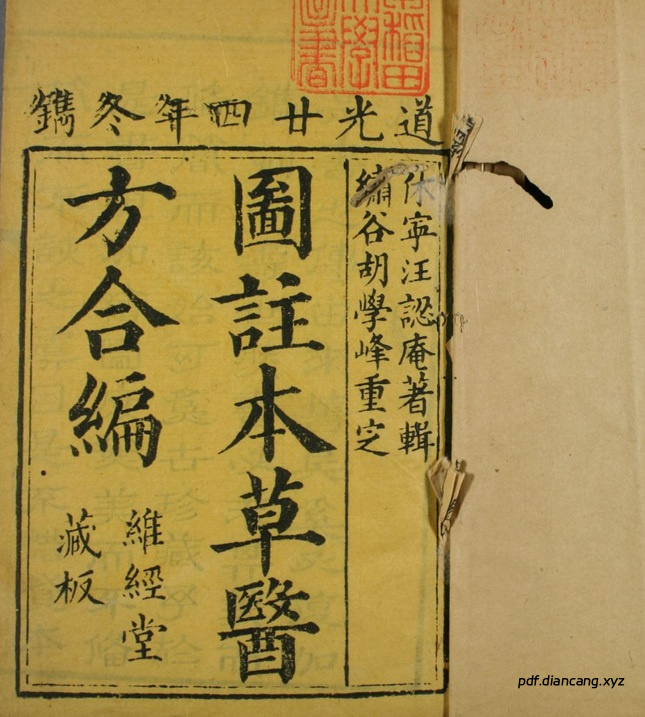 道光廿四年冬鐫
休寧汪認庵著輯
繡谷胡學峰重定
圖註本草醫
方合編
維經堂
藏板
pdf.diancang.xyz